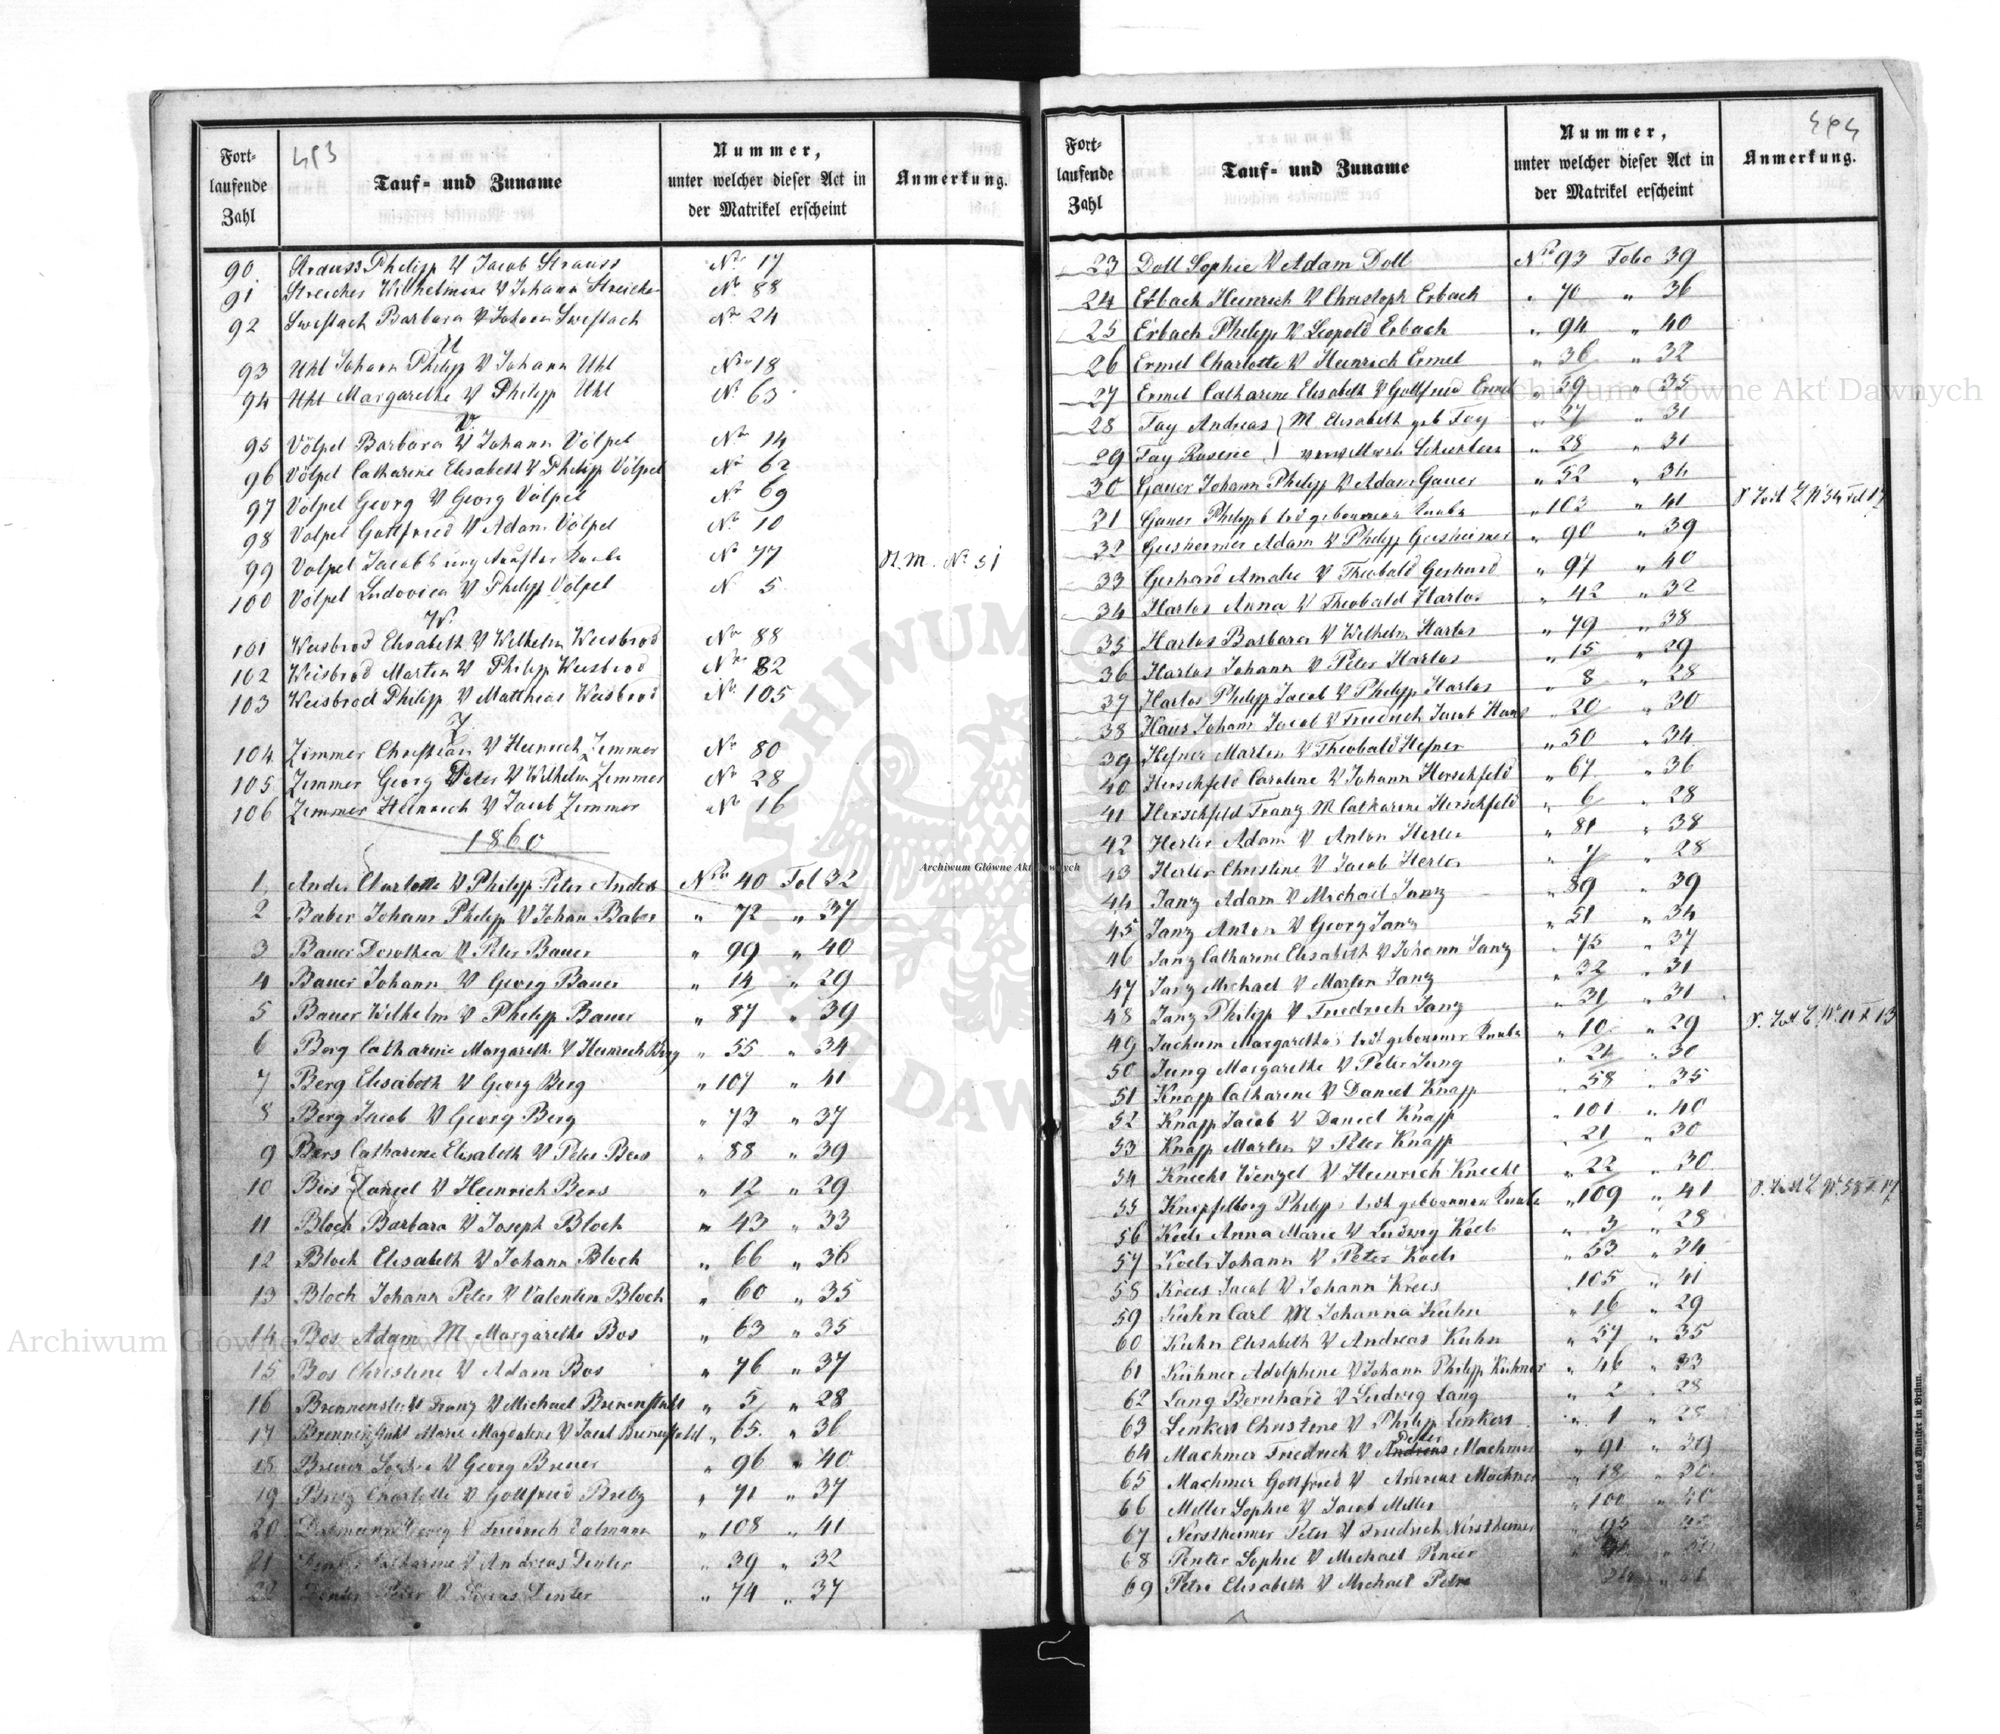 493
Fort-
laufende
Zahl
Tauf- und Zuname
Nummer,
unter welcher dieser Act in
der Matrikel erscheint
Anmerkung.
90 Strauss Philipp V Jacob Strauss No 17
91 Streicher Wilhelmine V Johann Streicher No 88
92 Swistach Barbara V Johann Swistach No 24
U
93 Uhl Johann Philipp V Johann Uhl No 18
94 Uhl Margarethe V Philipp Uhl No 63
V
95 Völpel Barbara V Johann Völpel No 14
96 Völpel Catharine Elisabeth V Philipp Völpel No 62
97 Völpel Georg V Georg Völpel No 69
98 Völpel Gottfried V Adam Völpel No 10
99 Völpel Jacob No 77 No 51
100 Völpel Ludovica V Philipp Völpel N 5
W
101 Weisbrod Elisabeth V Wilhelm Weisbrod No 88
102 Weisbrod Martin V Philipp Weisbrod No 82
103 Weisbrod Philipp V Matthias Weisbrod No 105
Z
104 Zimmer Christian V Heinrich Zimmer No 80
105 Zimmer Georg Peter V Wilhelm Zimmer No 28
106 Zimmer Heinrich V Jacob Zimmer No 16
1860
1 Ander Charlotte V Philipp Peter Ander Nro 40 Fol 32
2 Baber Johann Philipp V Johan Baber " 72 " 37
3 Bauer Dorothea V Peter Bauer " 99 " 40
4 Bauer Johann V Georg Bauer " 14 " 29
5 Bauer Wilhelm V Philipp Bauer " 87 " 39
6 Berg Catharine Margarethe V Heinrich Berg " 55 " 34
7 Berg Elisabeth V Georg Berg " 107 " 41
8 Berg Jacob V Georg Berg " 73 " 37
9 Bers Catharine Elisabeth V Peter Bers " 88 " 39
10 Bers Daniel V Heinrich Bers " 12 " 29
11 Bloch Barbara V Joseph Bloch " 43 " 33
12 Bloch Elisabeth V Johann Bloch " 66 " 36
13 Bloch Johann Peter V Valentin Bloch " 60 " 35
14 Bos Adam M Margarethe Bos " 63 " 35
15 Bos Christine V Adam Bos " 76 " 37
16 Brennenstuhl Franz V Michael Brennenstuhl " 5 " 28
17 Brennenstuhl Marie Magdalene V Jacob Brennenstuhl " 65 " 36
18 Breuer V Georg Breuer " 96 " 40
19 Bretz Charlotte V Gottfried Bretz " 71 " 37
20 V Friedrich Dalmann " 108 " 41
21 Catharine V Andreas Dexler " 39 " 32
22 Denter Peter V Lucas Denter " 74 " 37
494
Fort-
laufende
Zahl
Tauf- und Zuname
Nummer,
unter welcher dieser Act in
der Matrikel erscheint
Anmerkung.
23 Doll Sophie V Adam Doll Nro 93 Folio 39
24 Erbach Heinrich V Christoph Erbach " 70 " 36
25 Erbach Philipp V Leopold Erbach " 94 " 40
26 Ermel Charlotte V Heinrich Ermel " 36 " 32
27 Ermel Catharine Elisabeth V Gottfried Ermel " 59 " 35
28 Fay Andreas } M Elisabeth geb Fay " 27 " 31
29 Fay Rosine } " 28 " 31
30 Gauer Johann Philipp V Adam Gauer " 52 " 34
31 Gauer Philipp " 103 " 41
32 Geisheimer Adam V Philipp Geisheimer " 90 " 39
33 Gerhard Amalie V Theobald Gerhard " 97 " 40
34 Harlos Anna V Theobald Harlos " 42 " 32
35 Harlos Barbara V Wilhelm Harlos " 79 " 38
36 Harlos Johann V Peter Harlos " 15 " 29
37 Harlos Philipp Jacob V Philipp Harlos " 8 " 28
38 Haus Johann Jacob V Friedrich Jacob Haus " 20 " 30
39 Hefner Martin V Theobald Hefner " 50 " 34
40 Herschfeld Caroline V Johann Herschfeld " 67 " 36
41 Herschfeld Franz M Catharine Herschfeld " 6 " 28
42 Herler Adam V Anton Herler " 81 " 38
43 Herler Christine V Jacob Herler " 7 " 28
44 Janz Adam V Michael Janz " 89 " 39
45 Janz Anton V Georg Janz " 51 " 34
46 Janz Catharine Elisabeth V Johann Janz " 75 " 37
47 Janz Michael V Martin Janz " 32 " 31
48 Janz Philipp V Friedrich Janz " 31 " 31
49 Jachum Margaretha " 10 " 29
50 Jung Margarethe V Peter Jung " 24 " 30
51 Knapp Catharine V Daniel Knapp " 58 " 35
52 Knapp Jacob V Daniel Knapp " 101 " 40
53 Knapp Martin V Peter Knapp " 21 " 30
54 Knecht Wenzel V Heinrich Knecht " 22 " 30
55 Knipfelberg Philipp " 109 " 41
56 Koch Anna Marie V Ludwig Koch " 3 " 28
57 Koch Johann V Peter Koch " 53 " 34
58 Krees Jacob V Johann Krees 105 " 41
59 Kuhn Carl M Johanna Kuhn " 16 " 29
60 Kuhn Elisabeth V Andreas Kuhn " 57 " 35
61 Kühner Adolphine V Johann Philipp Kühner " 46 " 33
62 Lang Bernhard V Ludwig Lang " 2 " 28
63 Lenkert Christine V Philipp Lenkert " 1 " 28
64 Machmer Friedrich V Peter Machmer " 91 " 39
65 Machmer Gottfried V Andreas Machmer " 18 " 30
66 Miller Sophie V Jacob Miller " 100 " 40
67 Nerstheimer Peter V Friedrich Nerstheimer " 95
68 Penter Sophie V Michael Penter
69 Petri Elisabeth V Michael Petri
Druck von Carl Winiker in Brünn.
Archiwum Główne Akt Dawnych
Archiwum Główne Akt Dawnych
Archiwum Główne Akt Dawnych
ARCHIWUM GŁÓWNE AKT DAWNYCH